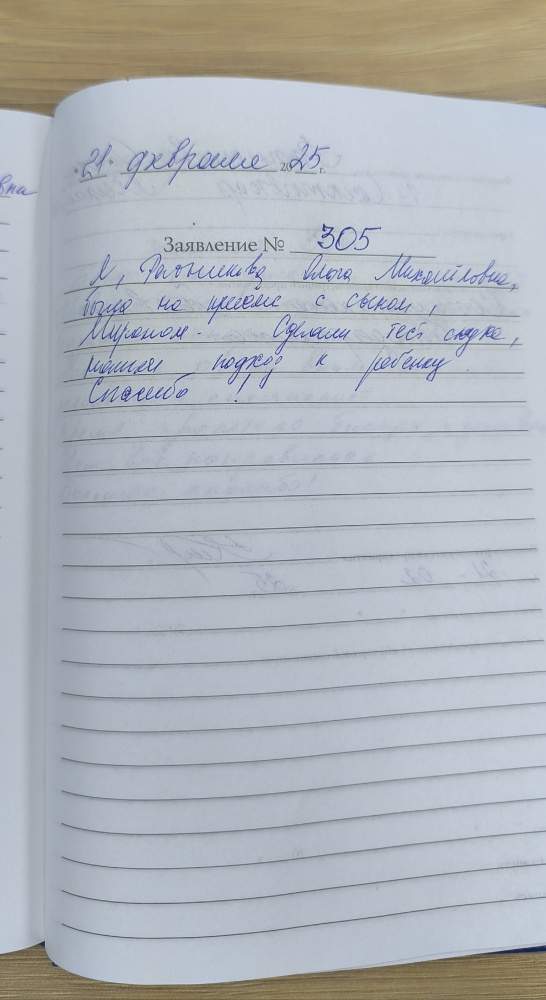 вна
"21" февраля 2025 г.
Заявление № 305
Я, Ольга Михайловна,
была на приёме с сыном,
Мироном. Сделали тест слуха,
нашли подход к ребенку.
Спасибо!